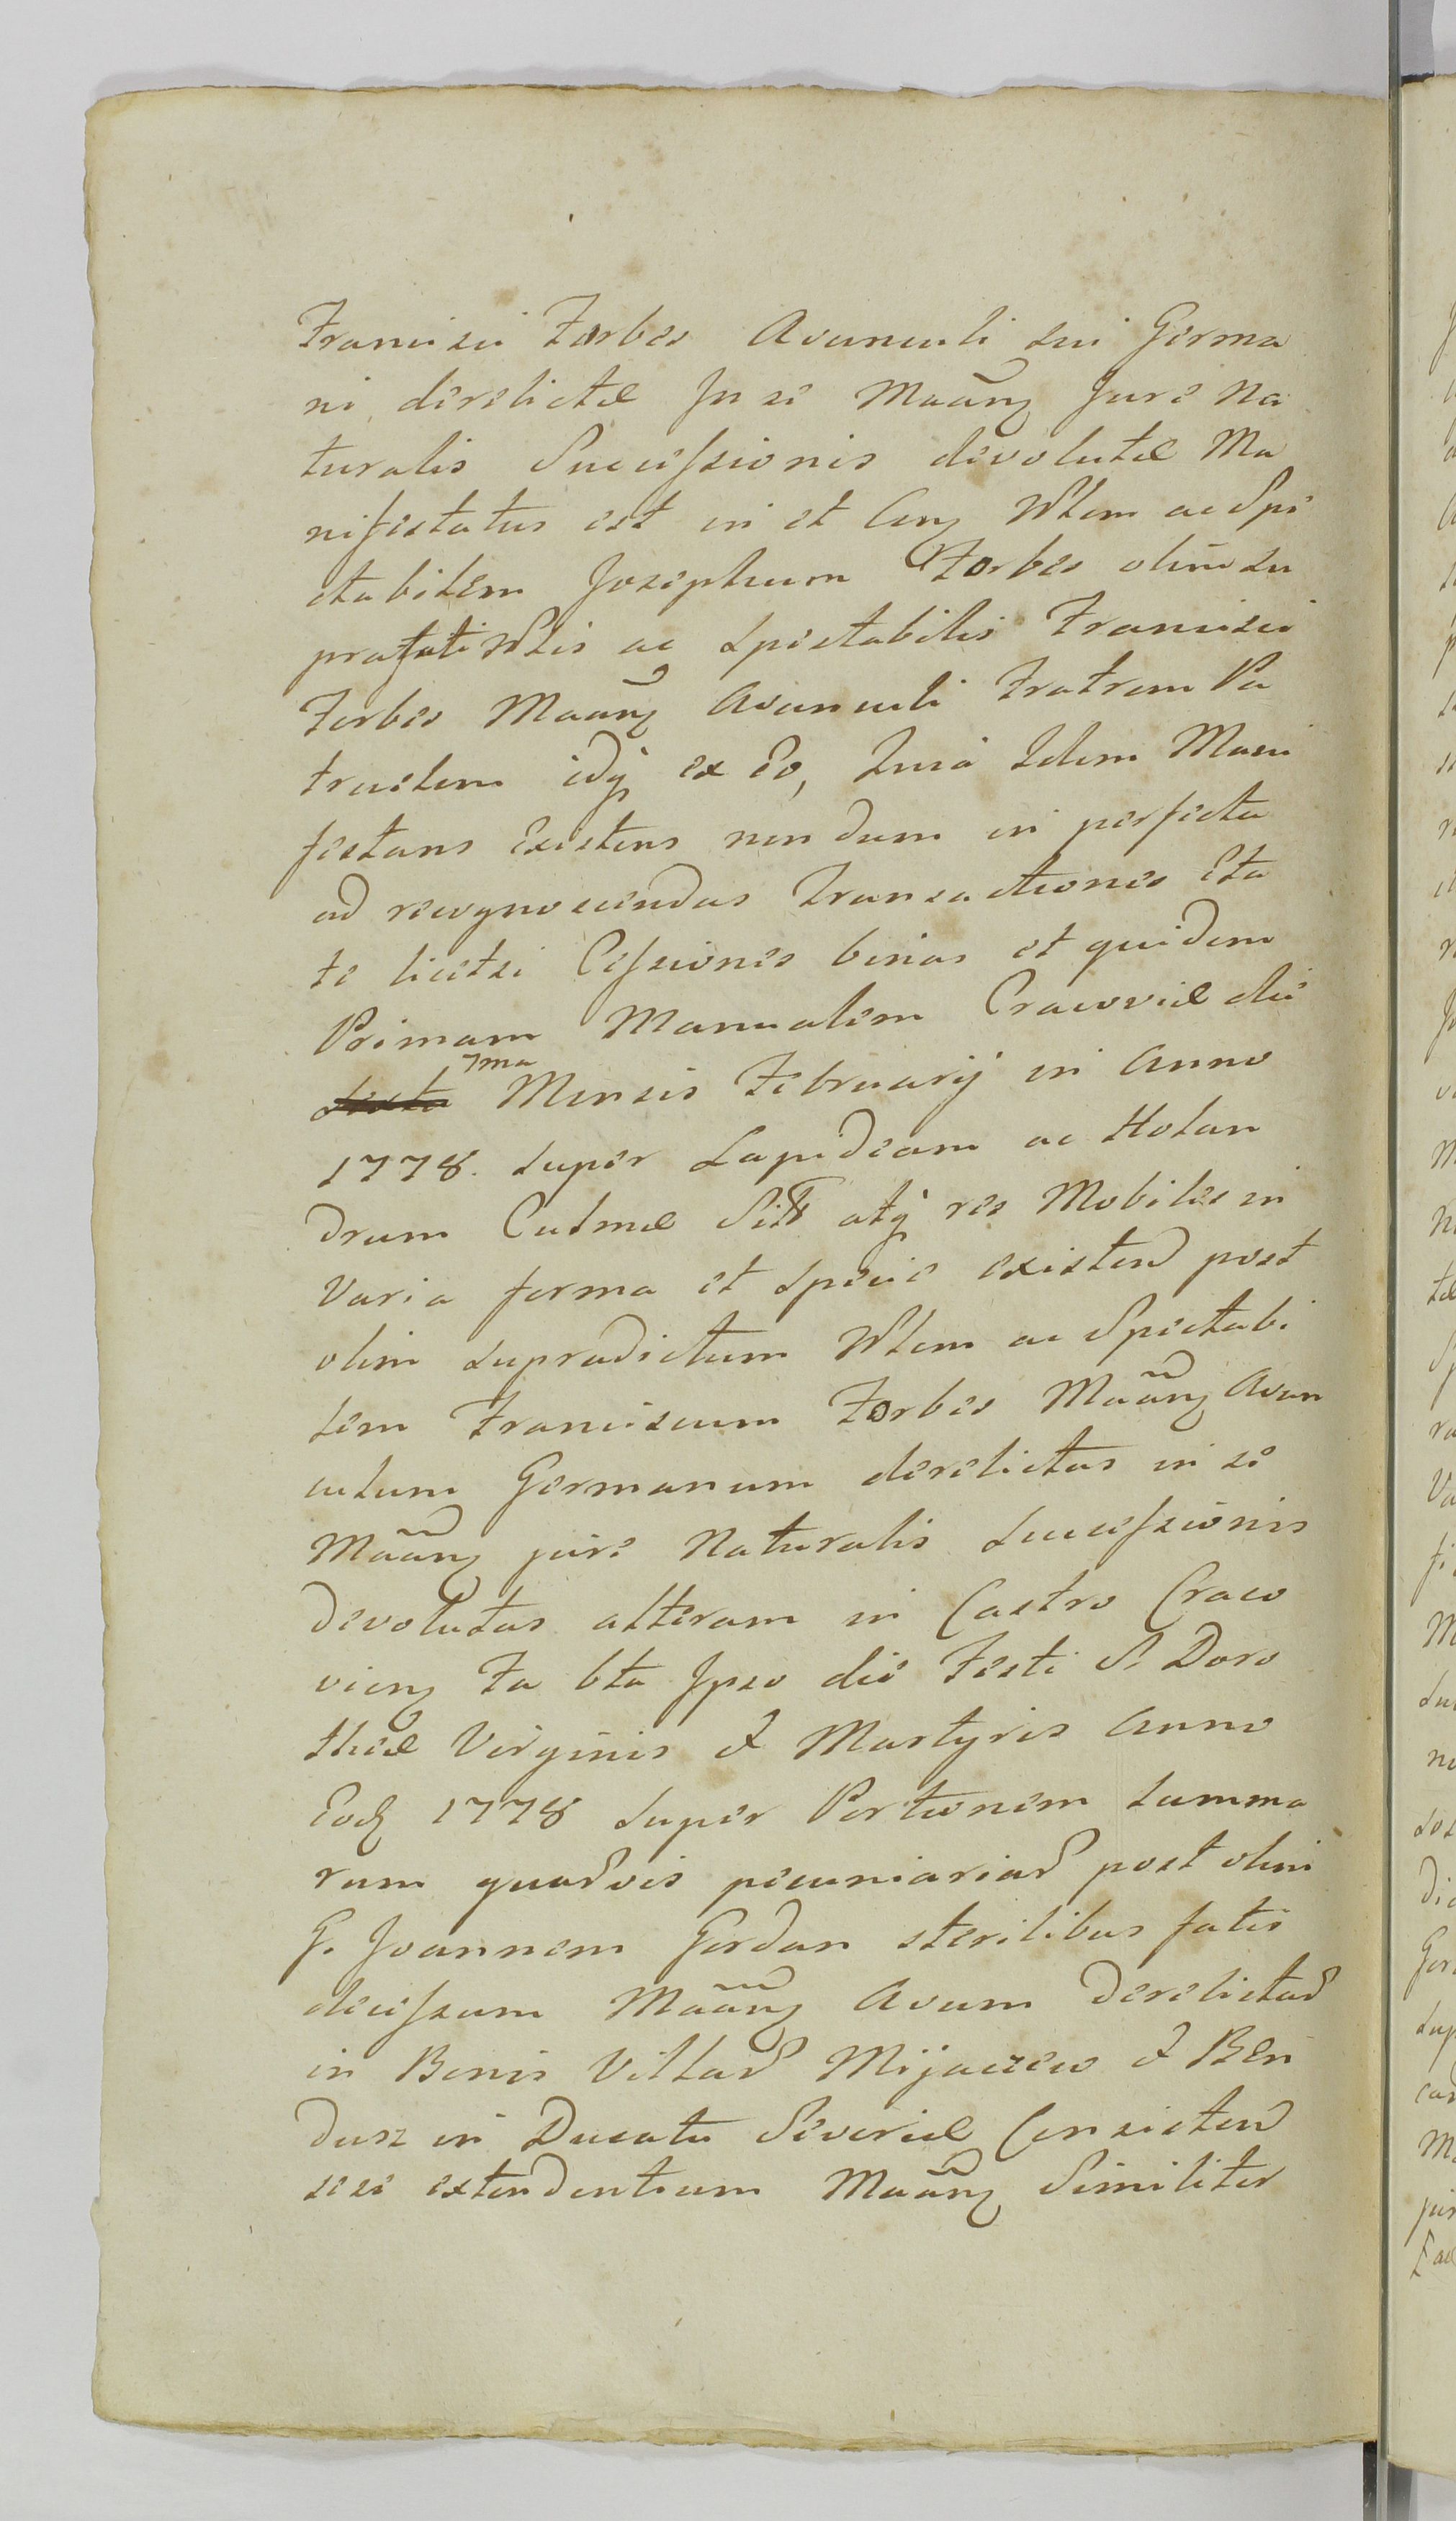 Francisci Forbes Avunculi sui Germa
ni derelictæ In se Maãng Jure Na
turalis Successionis devolutæ Ma
nifestatus est in et Cong Wlem ac Spe
ctabilem Josephum Forbes olim su
prafati Wlis ac Spectabilis Francisci
Forbes Maãng Avunculi Fratrem Pa
truelem idq ex Eo, Quia Idem Mani
festans Existens non dum in perfecta
ad recognoscendas Transactiones Eta
te licetsi Cessiones binas et quidem
Primam Manualem Cracoviæ die
7ma Mensis Februarij in Anno
1778. super Lapideam ac Holan
drum Culmæ Sit atq res Mobiles in
Varia forma et specie existen post
olim supradictum Wlem ac Spectabi
lem Franciscum Forbes Maãng Avun
culum Germanum derelictas in se
Maãng jure Naturalis Successionis
devolutas alteram in Castro Craco
vieng Fa 6ta Ipso die Festi S. Doro
theæ Virginis & Martyris Anno
Eod 1778 super Portionem summa
rum quarvis pecuniariar post olim
G. Joannem Gordan sterilibus fatis
decessum Maãng Avum Derelictar
in Bonis Villar Mijaczew & Ben
dusz in Ducatu Severiæ Consisten
sese extendentium Maãng Similiter